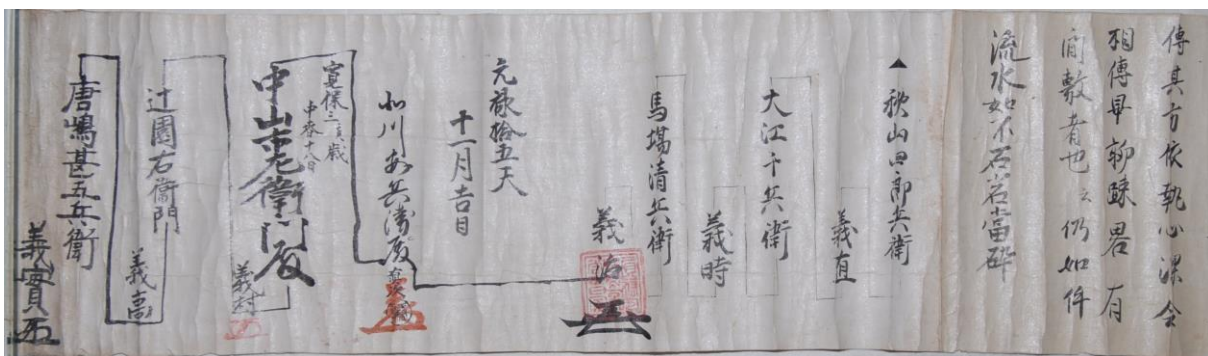 傳其方依執心深令
相傳早聊踈畧有
間敷者也云仍如件
流水如不石岩當砕
秋山四郎兵衛
義直
大江千兵衛
義時
馬場清兵衛
義治
元禄拾五天
十一月吉日
小川兵衛殿
寛保三亥歳
中春十八日
中山衛門殿
義村
辻園右衛門
義高
唐嶋甚五兵衛
義實